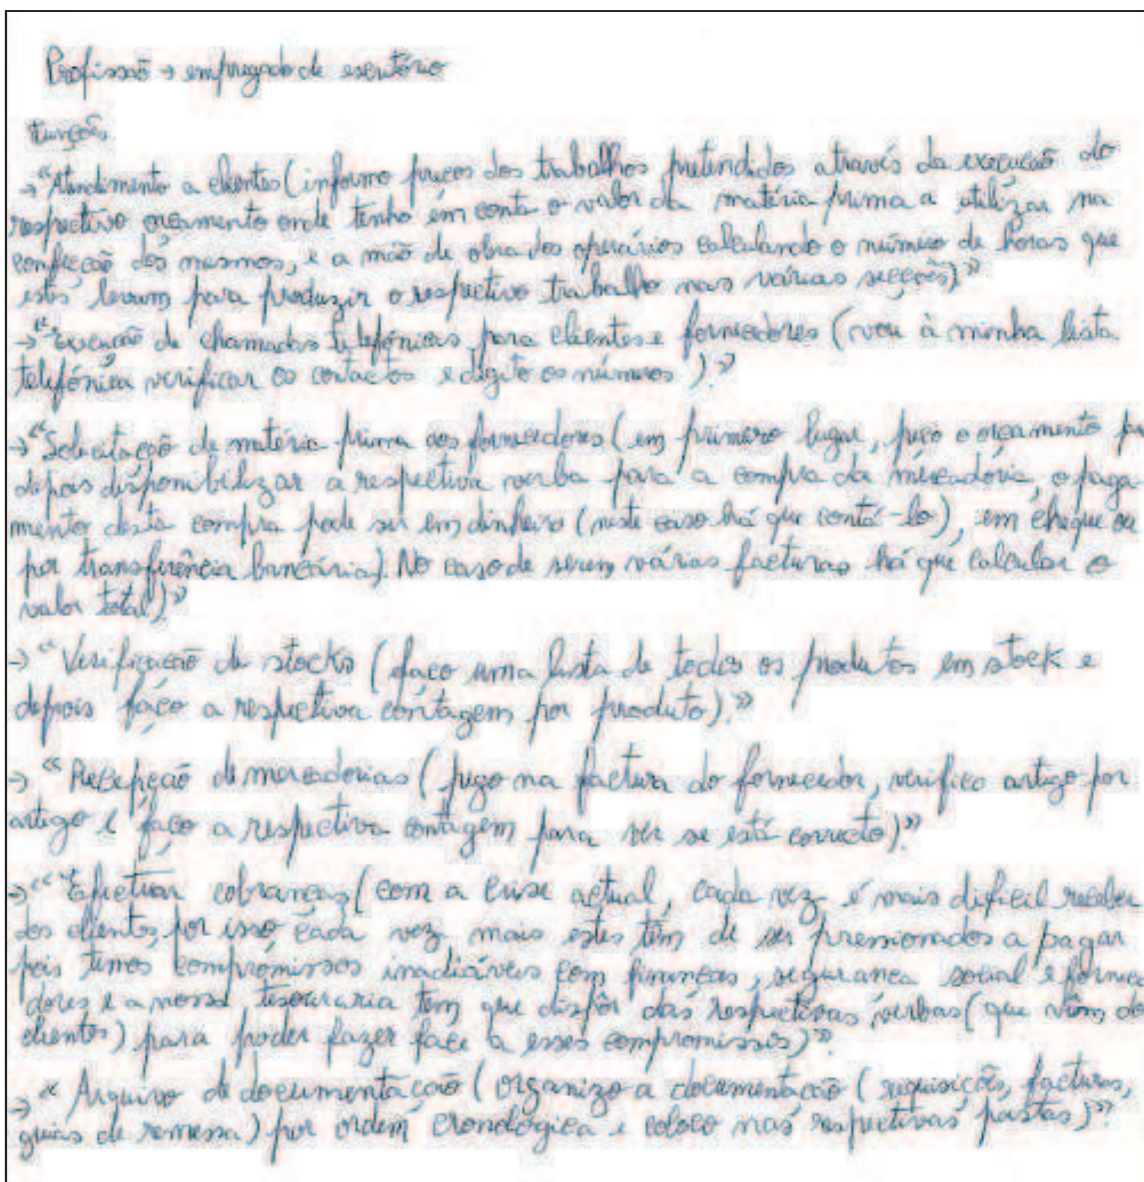 Profissão → empregado de escritório
Funções
→ "Atendimento a clientes (informo preços dos trabalhos pretendidos através da execução do
respectivo orçamento onde tenho em conta o valor da matéria prima a utilizar na
confecção dos mesmos, e a mão de obra dos operários calculando o número de horas que
estes levam para produzir o respectivo trabalho nas várias secções)."
→ "Execução de chamadas telefónicas para clientes e fornecedores (vou à minha lista
telefónica verificar os contactos e digito os números)."
→ "Solicitação de matéria prima aos fornecedores (em primeiro lugar, peço o orçamento
depois disponibilizar a respectiva verba para a compra da mercadoria, o paga-
mento desta compra pode ser em dinheiro (neste caso há que contá-lo), em cheque ou
por transferência bancária). No caso de serem várias facturas há que calcular o
valor total)."
→ "Verificação de stocks (faço uma lista de todos os produtos em stock e
depois faço a respectiva contagem por produto)."
→ "Recepção de mercadorias (pego na factura do fornecedor, verifico artigo por
artigo e faço a respectiva contagem para ver se está correcto)."
→ "Efectuar cobranças (com a crise actual, cada vez é mais difícil receber
dos clientes, por isso cada vez mais estes têm de ser pressionados a pagar
pois temos compromissos inadiáveis com finanças, segurança social e fornece
dores e a nossa tesouraria tem que dispôr das respectivas verbas (que vêm do
clientes) para poder fazer face a esses compromissos)".
→ "Arquivo de documentação (organizo a documentação (requisições, facturas,
guias de remessa) por ordem cronológica e coloco nas respectivas pastas)".